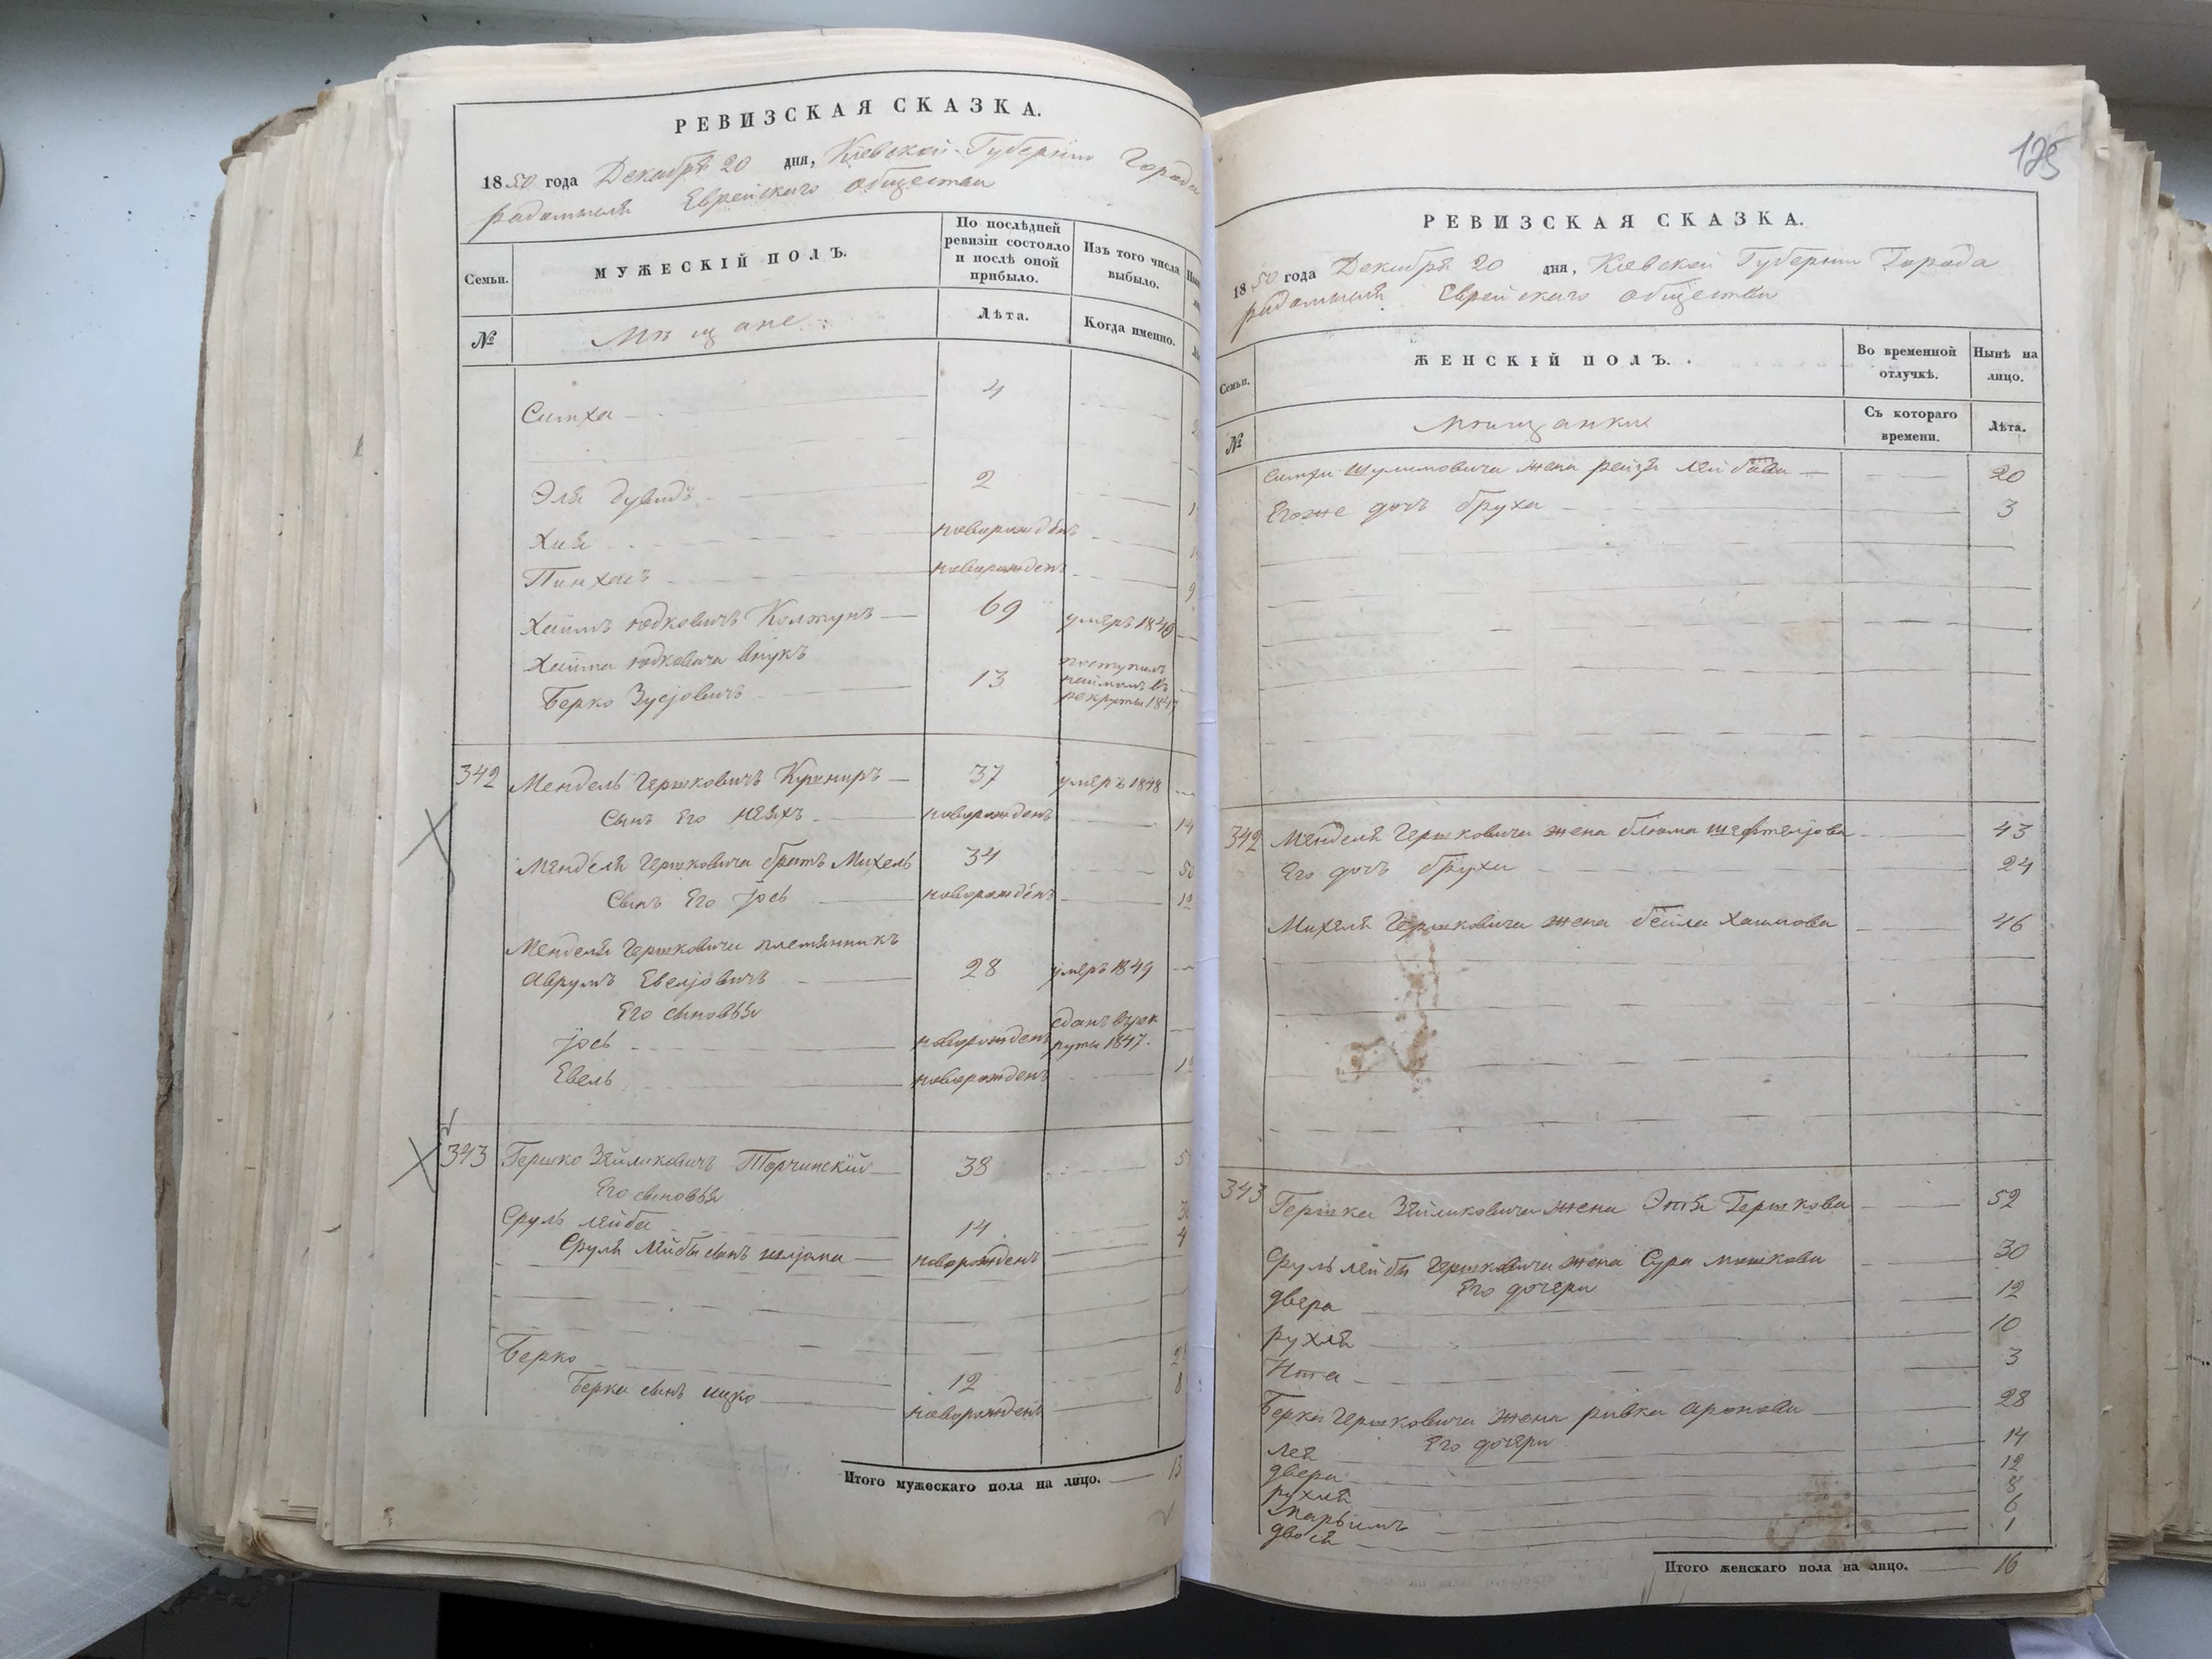 РЕВИЗСКАЯ СКАЗКА.
1850 года Декабря 20 дня, Кіевской Губерніи Города
радомысля Еврейскаго общества
Семьи.
МУЖЕСКІЙ ПОЛЪ.
По послѣдней ревизіи состояло и послѣ оной прибыло.
Изъ того числа выбыло.
№
Мѣщане
Лѣта.
Когда именно.
Симха 4
Эля дувидъ 2
Хия новорожденъ
Пинхасъ новорожденъ 9
Хаимъ юдковичъ Колтунъ 69 умеръ 1846
Хаима юдковича внукъ
Берко Зусјовичъ 13 поступилъ наймомъ въ рекруты 184
342 Мендель Гершковичъ Кушниръ 37 умеръ 1848
Сынъ Его новорожденъ 14
Менделя Гершковича братъ Михель 34 50
Сынъ Его Јось новорожденъ 12
Менделя Гершковича племянникъ
Аврумъ Евелјовичъ 28 умеръ 1849
Его сыновья
Јось новорожденъ сданъ въ рекруты 1847.
Евель новорожденъ
343 Гершко Зейликовичъ Торчинскій 38
Его сыновья
Сруль лейба 14
Сруля Лейбы сынъ шлјома новорожденъ 4
Берко 12
Берка сынъ ицко новорожденъ 8
Итого мужескаго пола на лицо. 13
125
РЕВИЗСКАЯ СКАЗКА.
1850 года Декабря 20 дня, Кіевской Губерніи Города
радомысля Еврейскаго общества
Семьи.
ЖЕНСКІЙ ПОЛЪ.
Во временной отлучкѣ.
Нынѣ на лицо.
№
мѣщанки
Съ котораго времени.
Лѣта.
Симхи Шулимовича жена рейзя лейбова 20
Егоже дочь бруха 3
342 Менделя Гершковича жена блюма шефтелјова 43
Его дочь бруха 24
Михеля Гершковича жена бейла Хаимова 46
343 Гершка Зейликовича жена Этя Гершкова 52
Сруль лейбы Гершковича жена Сура мошкова 30
Его дочери
двера 12
рухля 10
Ита 3
Берки Гершковича жена ривка аронова 28
Его дочери
Лея 14
двера 12
рухля 8
Марьямъ 6
двося 1
Итого женскаго пола на лицо. 16